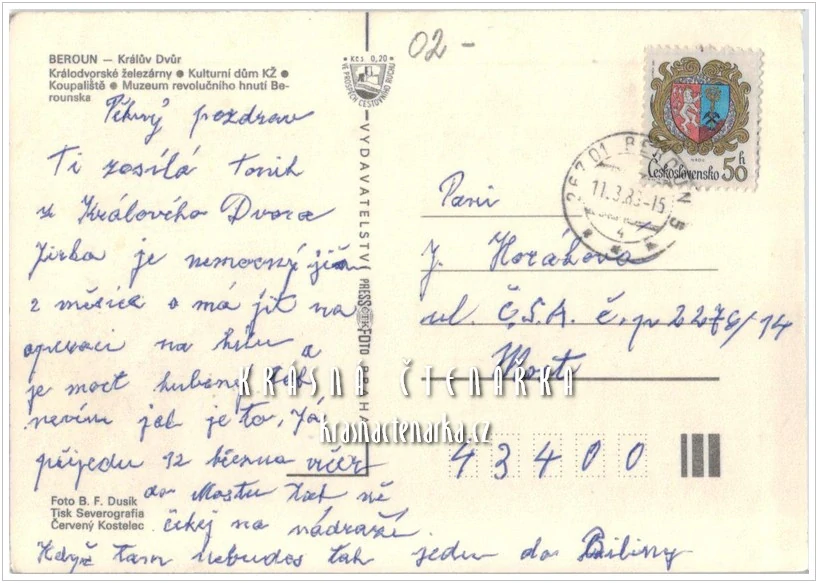 BEROUN — Králův Dvůr
Králodvorské železárny ● Kulturní dům KŽ ●
Koupaliště ● Muzeum revolučního hnutí Be-
rounska
Pěkný pozdrav
Ti zasílá
z Králového Dvora
Jirka je nemocný již
2 měsíce a má jít na
operaci na
je moct hubený a
nevím jak je to, Já
přijedu 12 března večer
do Mostu tak mě
čekej na nádraží.
Když tam nebudeš tak jedu do Biliny
Foto B. F. Dusík
Tisk Severografia
Červený Kostelec
Kčs 0,20
VE PROSPĚCH CESTOVNÍHO RUCHU
VYDAVATELSTVÍ PRESSFOTO PRAHA
ČTK
02-
Československo 50 h
267 01 BEROUN 5
11.3.83-15
4
Paní
J. Horákova
ul. Č.S.A. č.p 2278/14
Most
43400
KRÁSNÁ ČTENÁŘKA
krasnactenarka.cz